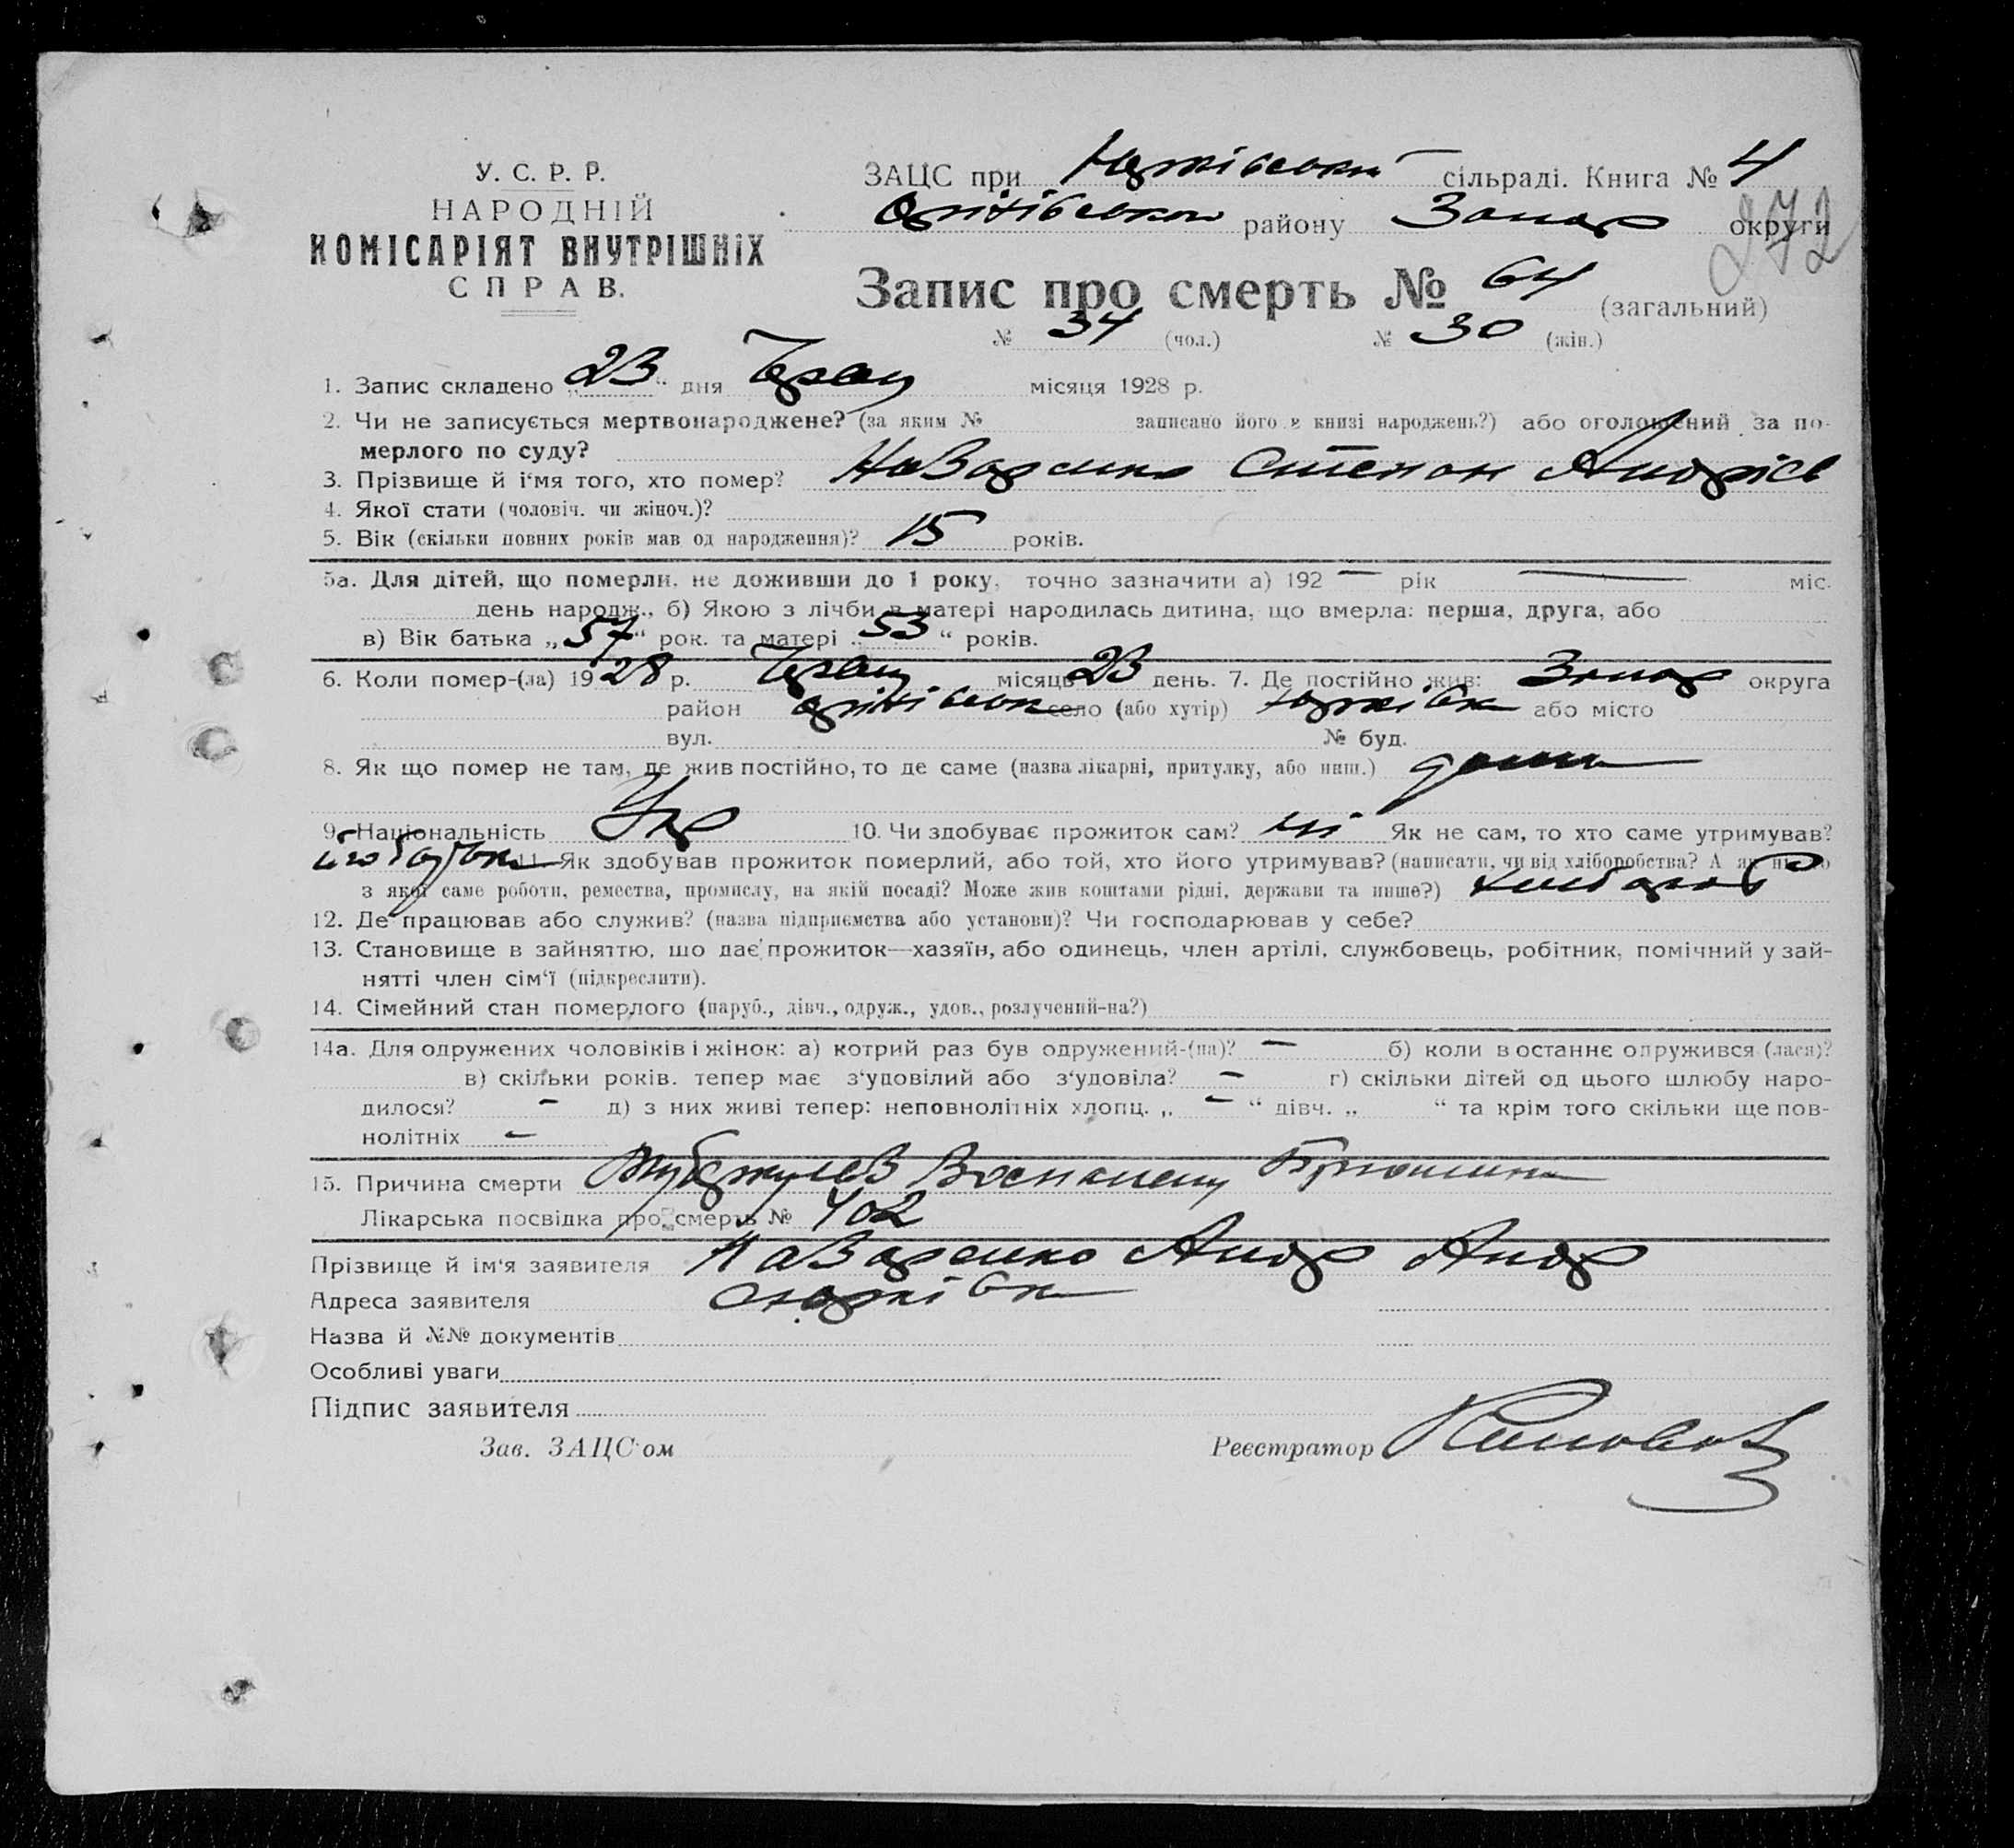 У. С. Р. Р.
НАРОДНІЙ
КОМІСАРІЯТ ВНУТРІШНІХ
СПРАВ.
ЗАЦС при Юрківській сільраді. Книга № 4
Оріхівського району Запор округи
272
Запис про смерть № 64 (загальний)
№ 34 (чол.) № 30 (жін.)
1. Запис складено „23“ дня місяця 1928 р.
2. Чи не записується мертвонароджене? (за яким № записано його в книзі народжень?) або оголошений за по-
мерлого по суду?
3. Прізвище й і‘мя того, хто помер? Назаренко Степан Андрієв
4. Якої стати (чоловіч. чи жіноч.)?
5. Вік (скільки повних років мав од народження)? 15 років.
5а. Для дітей, що померли, не доживши до 1 року, точно зазначити а) 192 — рік — міс.
день народж., б) Якою з лічби в матері народилась дитина, що вмерла: перша, друга, або
в) Вік батька „57“ рок. та матері „53“ років.
6. Коли помер-(ла) 1928 р. місяць 23 день. 7. Де постійно жив: Запор округа
район Оріхівськ село (або хутір) Юрківк або місто
вул. № буд.
8. Як що помер не там, де жив постійно, то де саме (назва лікарні, притулку, або инш.) дома
9. Національність Укр 10. Чи здобуває прожиток сам? ні Як не сам, то хто саме утримував?
11. Як здобував прожиток померлий, або той, хто його утримував? (написати, чи від хліборобства? А як ні, то
з якої саме роботи, ремества, промислу, на якій посаді? Може жив коштами рідні, держави та инше?) хлібороб
12. Де працював або служив? (назва підприємства або установи)? Чи господарював у себе?
13. Становище в зайняттю, що дає прожиток—хазяїн, або одинець, член артілі, службовець, робітник, помічний у зай-
нятті член сім‘ї (підкреслити).
14. Сімейний стан померлого (паруб., дівч., одруж., удов., розлучений-на?)
14а. Для одружених чоловіків і жінок: а) котрий раз був одружений-(на)? — б) коли востаннє одружився (лася)?
в) скільки років. тепер має з‘удовілий або з‘удовіла? — г) скільки дітей од цього шлюбу наро-
дилося? — д) з них живі тепер: неповнолітніх хлопц. „ — “ дівч. „ “ та крім того скільки ще пов-
нолітніх —
15. Причина смерти
Лікарська посвідка про смерть № 402
Прізвище й ім‘я заявителя Назаренко Андр Андр
Адреса заявителя с Юрківк
Назва й №№ документів
Особливі уваги
Підпис заявителя
Зав. ЗАЦС‘ом Реєстратор